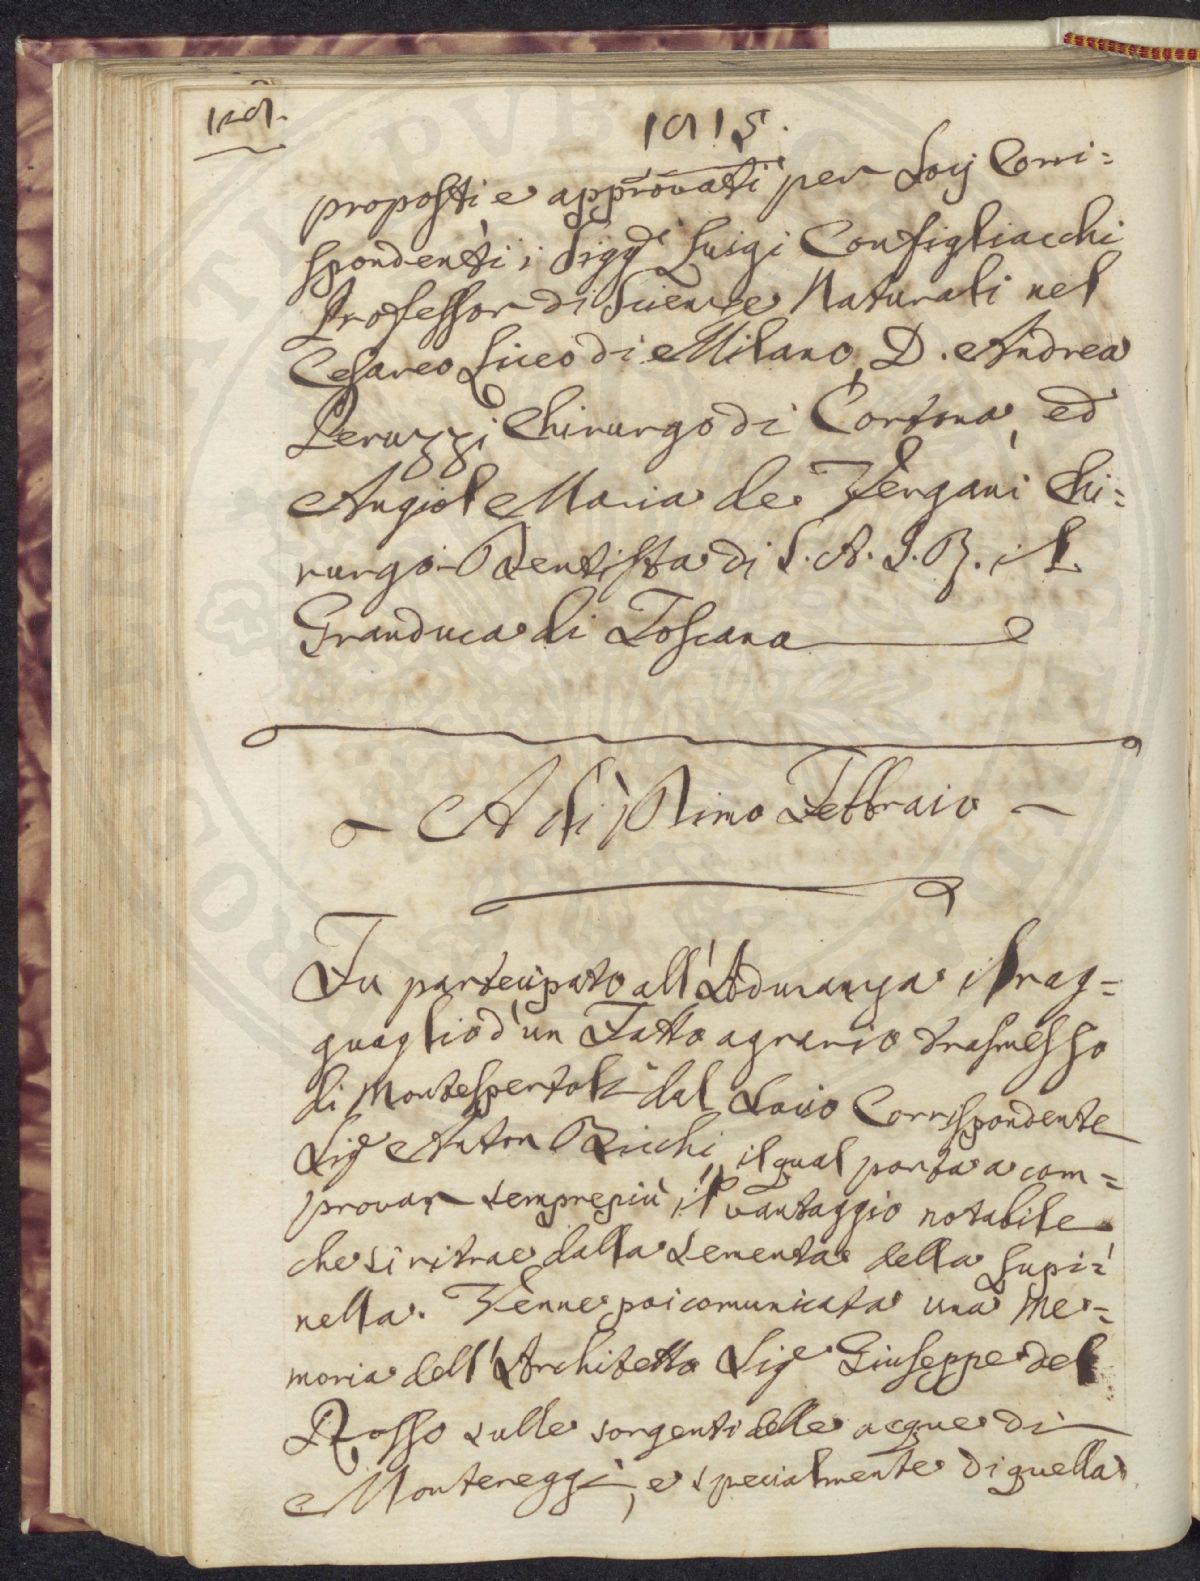 1815.
proposti, e approvati per Socj Corri=
spondenti, i Sigg.ri Luigi Configliacchi
Professor di Scienze Naturali nel
Cesareo Liceo di Milano, D. Andrea
Peruzzi Chirurgo di Cortona, ed
Angiol Maria de Vergani Chi=
rurgo Dentista di S. A. I. R. il
Granduca di Toscana
A dì Primo Febbraio
Fu partecipato all'Adunanza il rag=
guaglio d'un Fatto agrario trasmesso
di Montespertoli dal Socio Corrispondente
Sig.e Anton Bicchi, il qual porta a com=
provar semprepiù il vantaggio notabile
che si ritrae dalla sementa della Lupi=
nella. Venne poi comunicata una Me=
moria dell'Architetto Sig.e Giuseppe del
Rosso sulle sorgenti delle acque di
Montereggi, e specialmente di quella